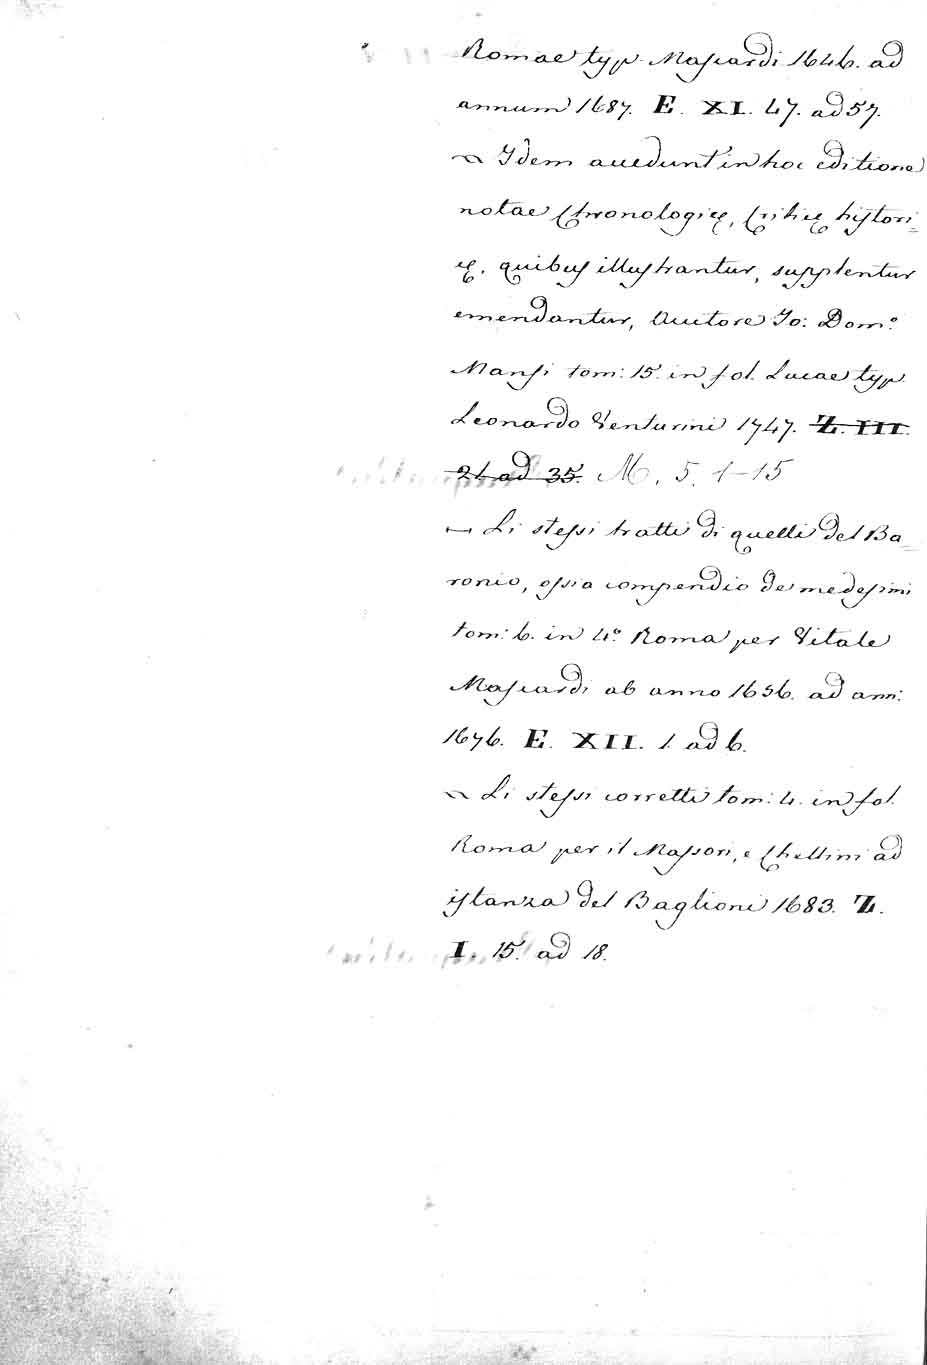 Romae typ. Mascardi 1646. ad
annum 1687. E. XI. 47. ad 57.
~ Idem accedunt in hoc editione
notae Chronologicę, Criticę histori=
cę. quibus illustrantur, supplentur
emendantur, Auctore Jo: Dom.º
Mansi tom: 15. in fol. Lucae typ.
Leonardo Venturini 1747. Z. III.
21. ad 35. M. 5. 1-15
~ Li stessi tratti di quelli del Ba=
ronio, ossia compendio de medesimi
tom: 6. in 4º Roma per Vitale
Mascardi ab anno 1656. ad ann:
1676. E. XII. 1. ad 6.
~ Li stessi corretti tom: 4. in fol.
Roma per il Massori, e Chellini ad
istanza del Baglioni 1683. Z.
I. 15. ad 18.